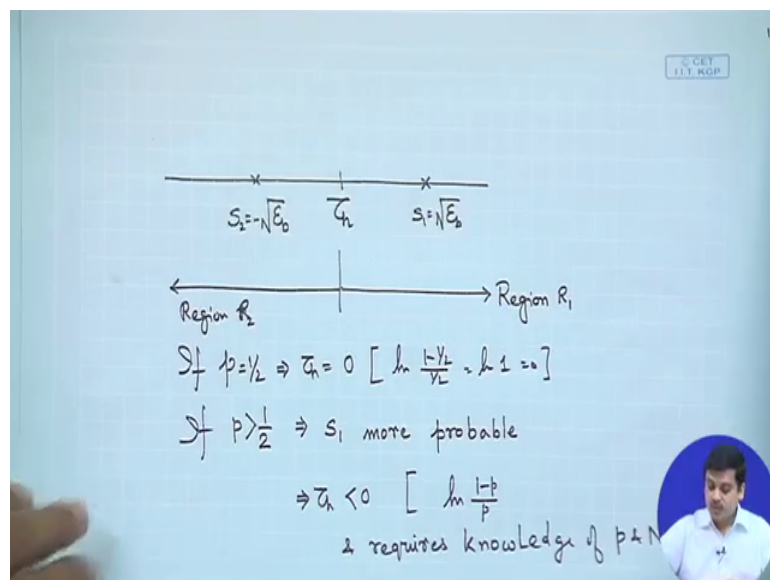 © CET
I.I.T. KGP
S₂=-√Ɛb τh S₁=√Ɛb
Region R₂ Region R₁
If p=1/2 ⇒ τh = 0 [ ln (1-1/2)/(1/2) = ln 1 = 0 ]
If p>1/2 ⇒ S₁ more probable
⇒ τh < 0 [ ln (1-p)/p
& requires knowledge of p & N